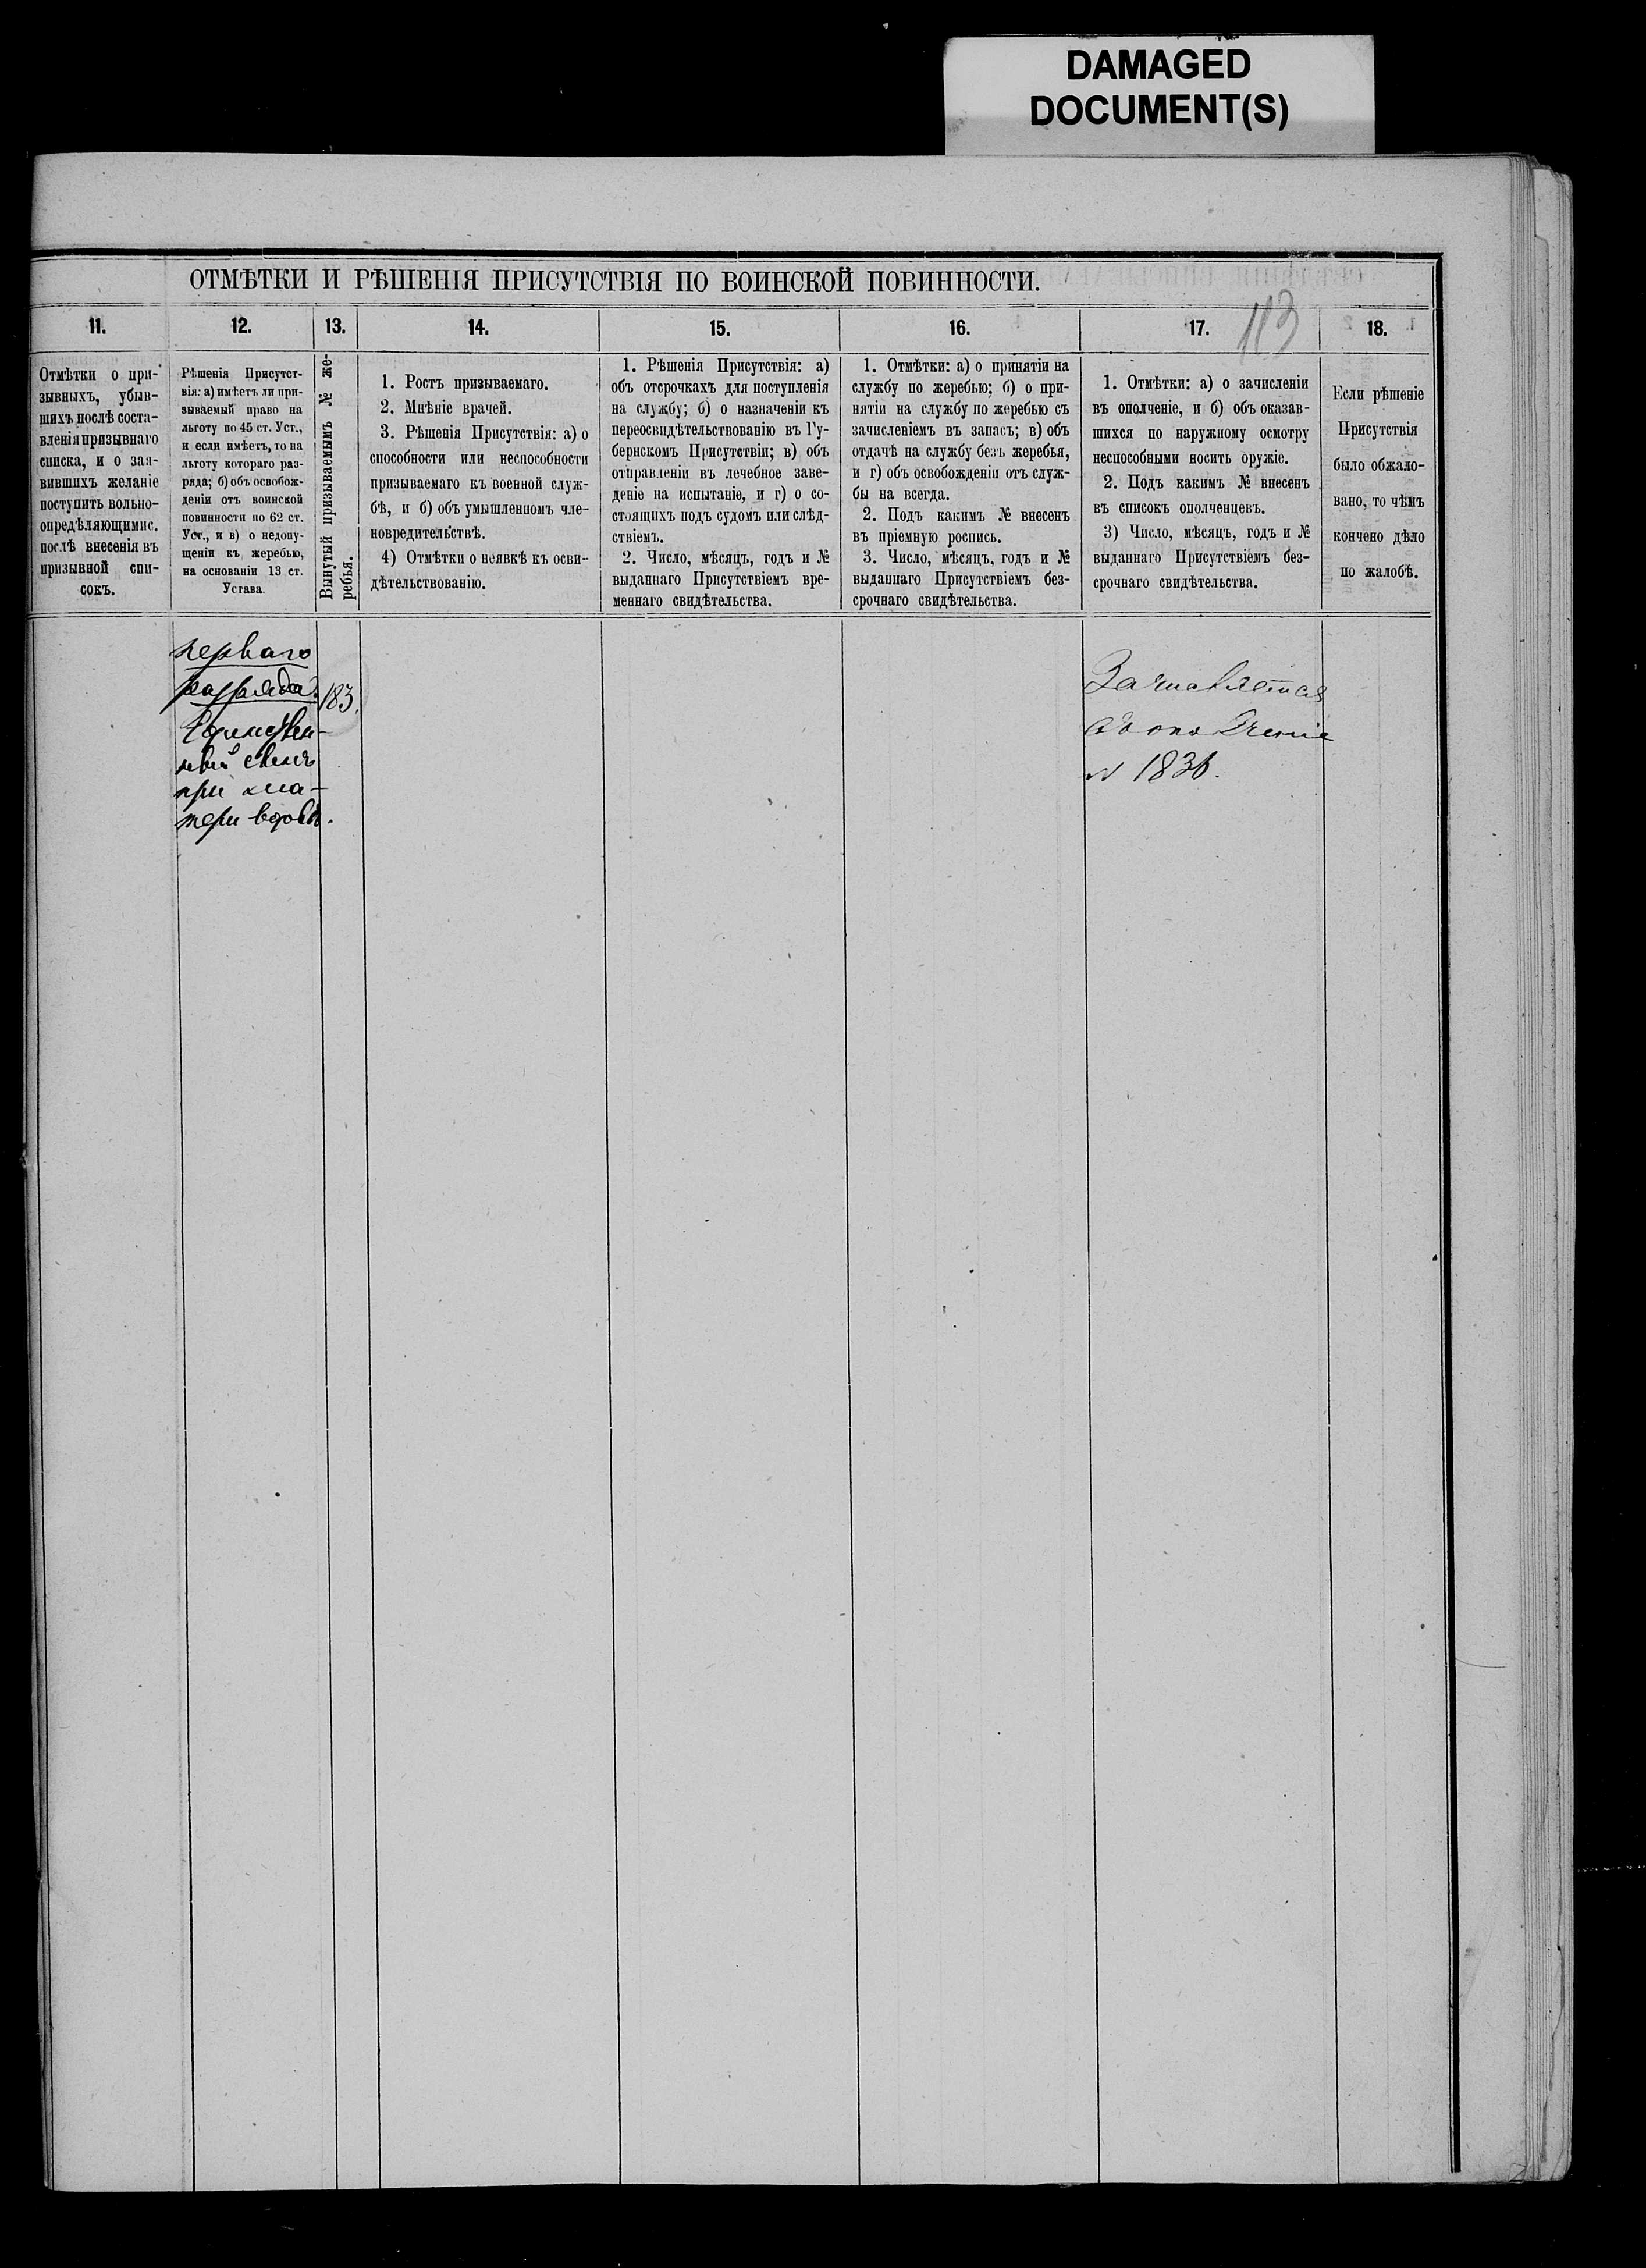 DAMAGED
DOCUMENT(S)
ОТМѢТКИ И РѢШЕНІЯ ПРИСУТСТВІЯ ПО ВОИНСКОЙ ПОВИННОСТИ.
113
11.
12.
13.
14.
15.
16.
17.
18.
Отмѣтки о при-
зывныхъ, убыв-
шихъ послѣ соста-
вленія призывнаго
списка, и о зая-
вившихъ желаніе
поступить вольно-
опредѣляющимис.
послѣ внесенія въ
призывной спи-
сокъ.
Рѣшенія Присутст-
вія: а) имѣетъ ли при-
зываемый право на
льготу по 45 ст. Уст.,
и если имѣетъ, то на
льготу котораго раз-
ряда; б) объ освобож-
деніи отъ воинской
повинности по 62 ст.
Уст., и в) о недопу-
щеніи къ жеребью,
на основаніи 13 ст.
Устава.
Вынутый призываемымъ № же-
ребья.
1. Ростъ призываемаго.
2. Мнѣніе врачей.
3. Рѣшенія Присутствія: а) о
способности или неспособности
призываемаго къ военной служ-
бѣ, и б) объ умышленномъ чле-
новредительствѣ.
4) Отмѣтки о неявкѣ къ осви-
дѣтельствованію.
1. Рѣшенія Присутствія: а)
объ отсрочкахъ для поступленія
на службу; б) о назначеніи къ
переосвидѣтельствованію въ Гу-
бернскомъ Присутствіи; в) объ
отправленіи въ лечебное заве-
деніе на испытаніе, и г) о со-
стоящихъ подъ судомъ или слѣд-
ствіемъ.
2. Число, мѣсяцъ, годъ и №
выданнаго Присутствіемъ вре-
меннаго свидѣтельства.
1. Отмѣтки: а) о принятіи на
службу по жеребью; б) о при-
нятіи на службу по жеребью съ
зачисленіемъ въ запасъ; в) объ
отдачѣ на службу безъ жеребья,
и г) объ освобожденіи отъ служ-
бы на всегда.
2. Подъ какимъ № внесенъ
въ пріемную роспись.
3. Число, мѣсяцъ, годъ и №
выданнаго Присутствіемъ без-
срочнаго свидѣтельства.
1. Отмѣтки: а) о зачисленіи
въ ополченіе, и б) объ оказав-
шихся по наружному осмотру
неспособными носить оружіе.
2. Подъ какимъ № внесенъ
въ списокъ ополченцевъ.
3) Число, мѣсяцъ, годъ и №
выданнаго Присутствіемъ без-
срочнаго свидѣтельства.
Если рѣшеніе
Присутствія
было обжало-
вано, то чѣмъ
кончено дѣло
по жалобѣ.
перваго
разряда.
Единствен-
ный сынъ
при ма-
тери вдовѣ.
183.
Зачисляется
въ ополченіе